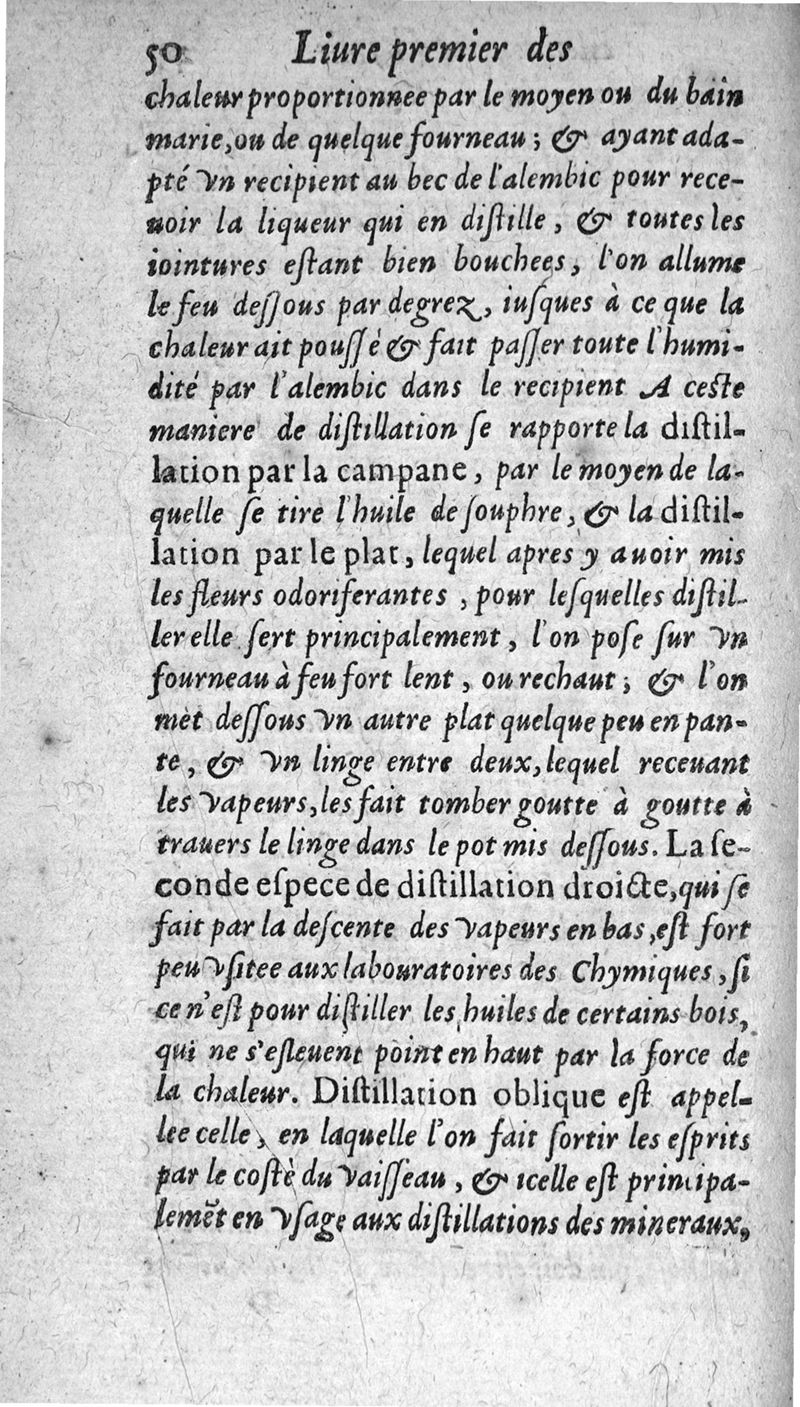 50 Liure premier des
chaleur proportionnee par le moyen ou du bain
marie, ou de quelque fourneau ; & ayant ada-
pté vn recipient au bec de l'alembic pour rece-
uoir la liqueur qui en diſtille, & toutes les
iointures eſtant bien bouchees, l'on allume
le feu deſſous par degrez, iuſques à ce que la
chaleur ait pouſſè & fait paſſer toute l'humi-
dité par l'alembic dans le recipient A ceſte
maniere de diſtillation ſe rapporte la diſtil-
lation par la campane, par le moyen de la-
quelle ſe tire l'huile de ſouphre, & la diſtil-
lation par le plat, lequel apres y auoir mis
les fleurs odoriferantes, pour leſquelles diſtil-
ler elle ſert principalement, l'on poſe ſur vn
fourneau à feu fort lent, ou rechaut ; & l'on
met deſſous vn autre plat quelque peu en pan-
te, & vn linge entre deux, lequel receuant
les vapeurs, les fait tomber goutte à goutte à
trauers le linge dans le pot mis deſſous. La ſe-
conde eſpece de diſtillation droicte, qui ſe
fait par la deſcente des vapeurs en bas, eſt fort
peu vſitee aux labouratoires des Chymiques, ſi
ce n'eſt pour diſtiller les huiles de certains bois,
qui ne s'eſleuent point en haut par la force de
la chaleur. Diſtillation oblique eſt appel-
lee celle, en laquelle l'on fait ſortir les eſprits
par le coſtè du vaiſſeau, & icelle eſt principa-
lemẽt en vſage aux diſtillations des mineraux,